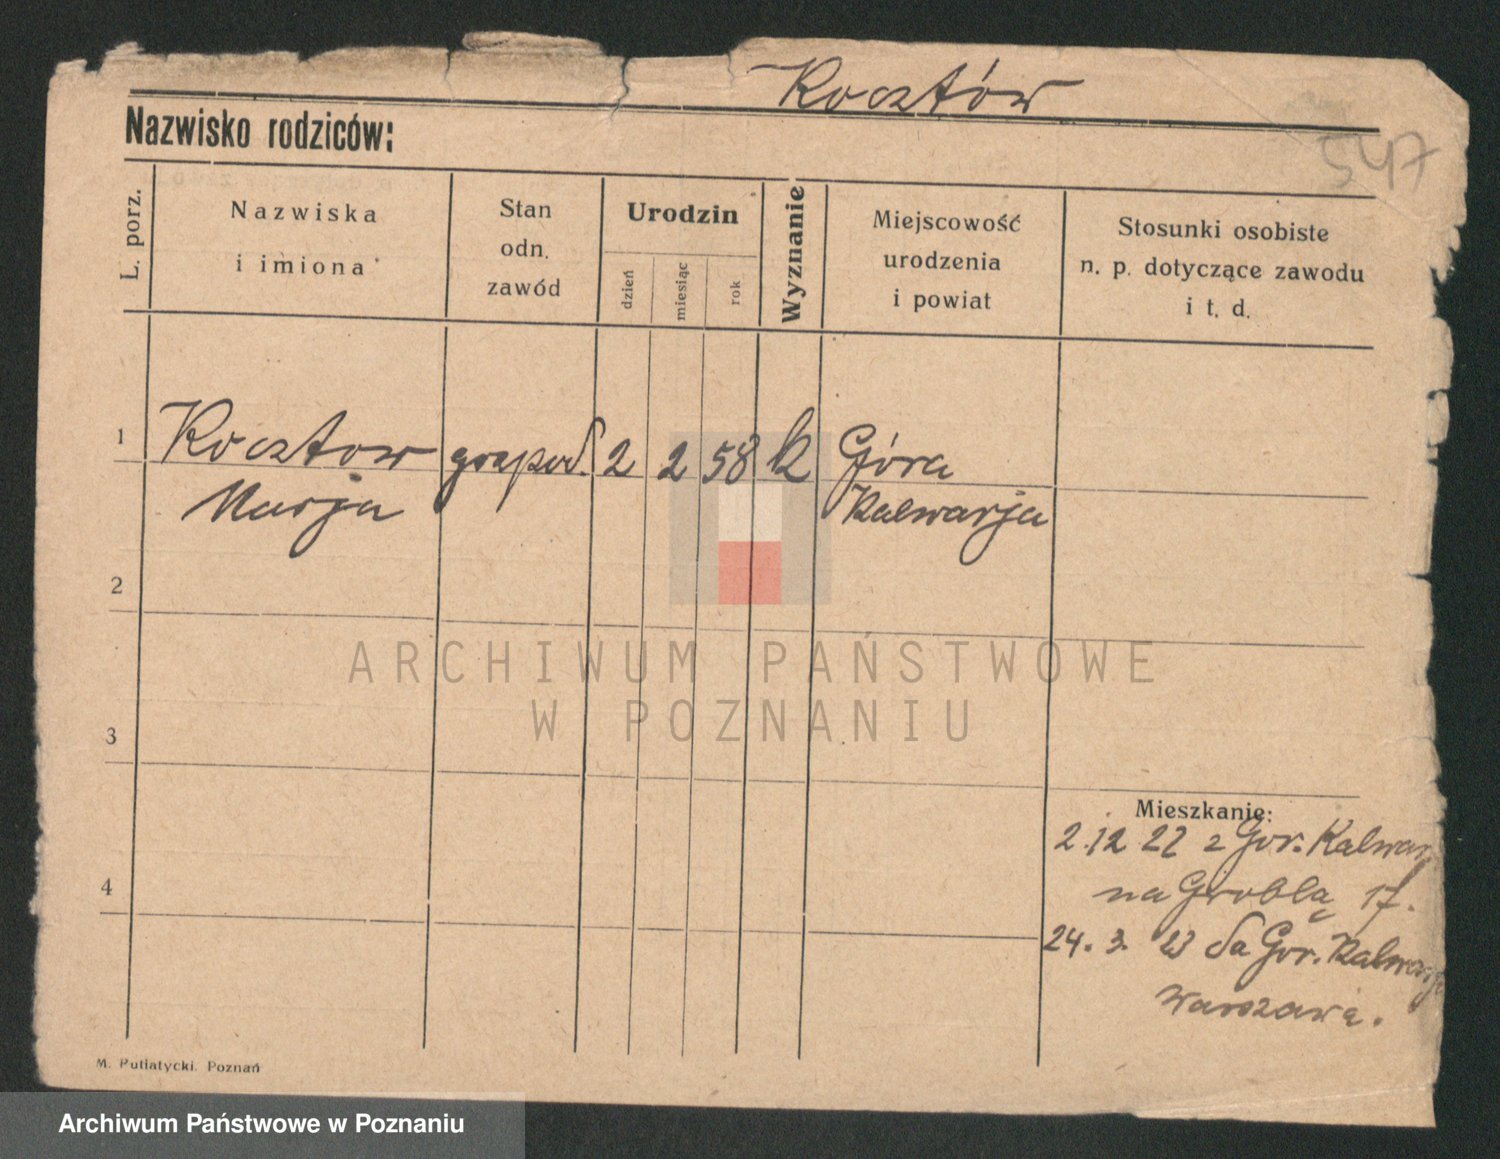 Kocztów
Nazwisko rodziców:
547
L. porz.
Nazwiska
i imiona
Stan
odn.
zawód
Urodzin
dzień
miesiąc
rok
Wyznanie
Miejscowość
urodzenia
i powiat
Stosunki osobiste
n. p. dotyczące zawodu
i t. d.
1
Kocztow gospod. 2 2 58 k Góra
Marja Kalwarja
2
ARCHIWUM PAŃSTWOWE
W POZNANIU
3
Mieszkanie:
2.12 22 z Gór. Kalwar
na Groblą 17.
4
24. 3. 23 do Gór. Kalwarja
Warszawa.
M. Putiatycki. Poznań
Archiwum Państwowe w Poznaniu